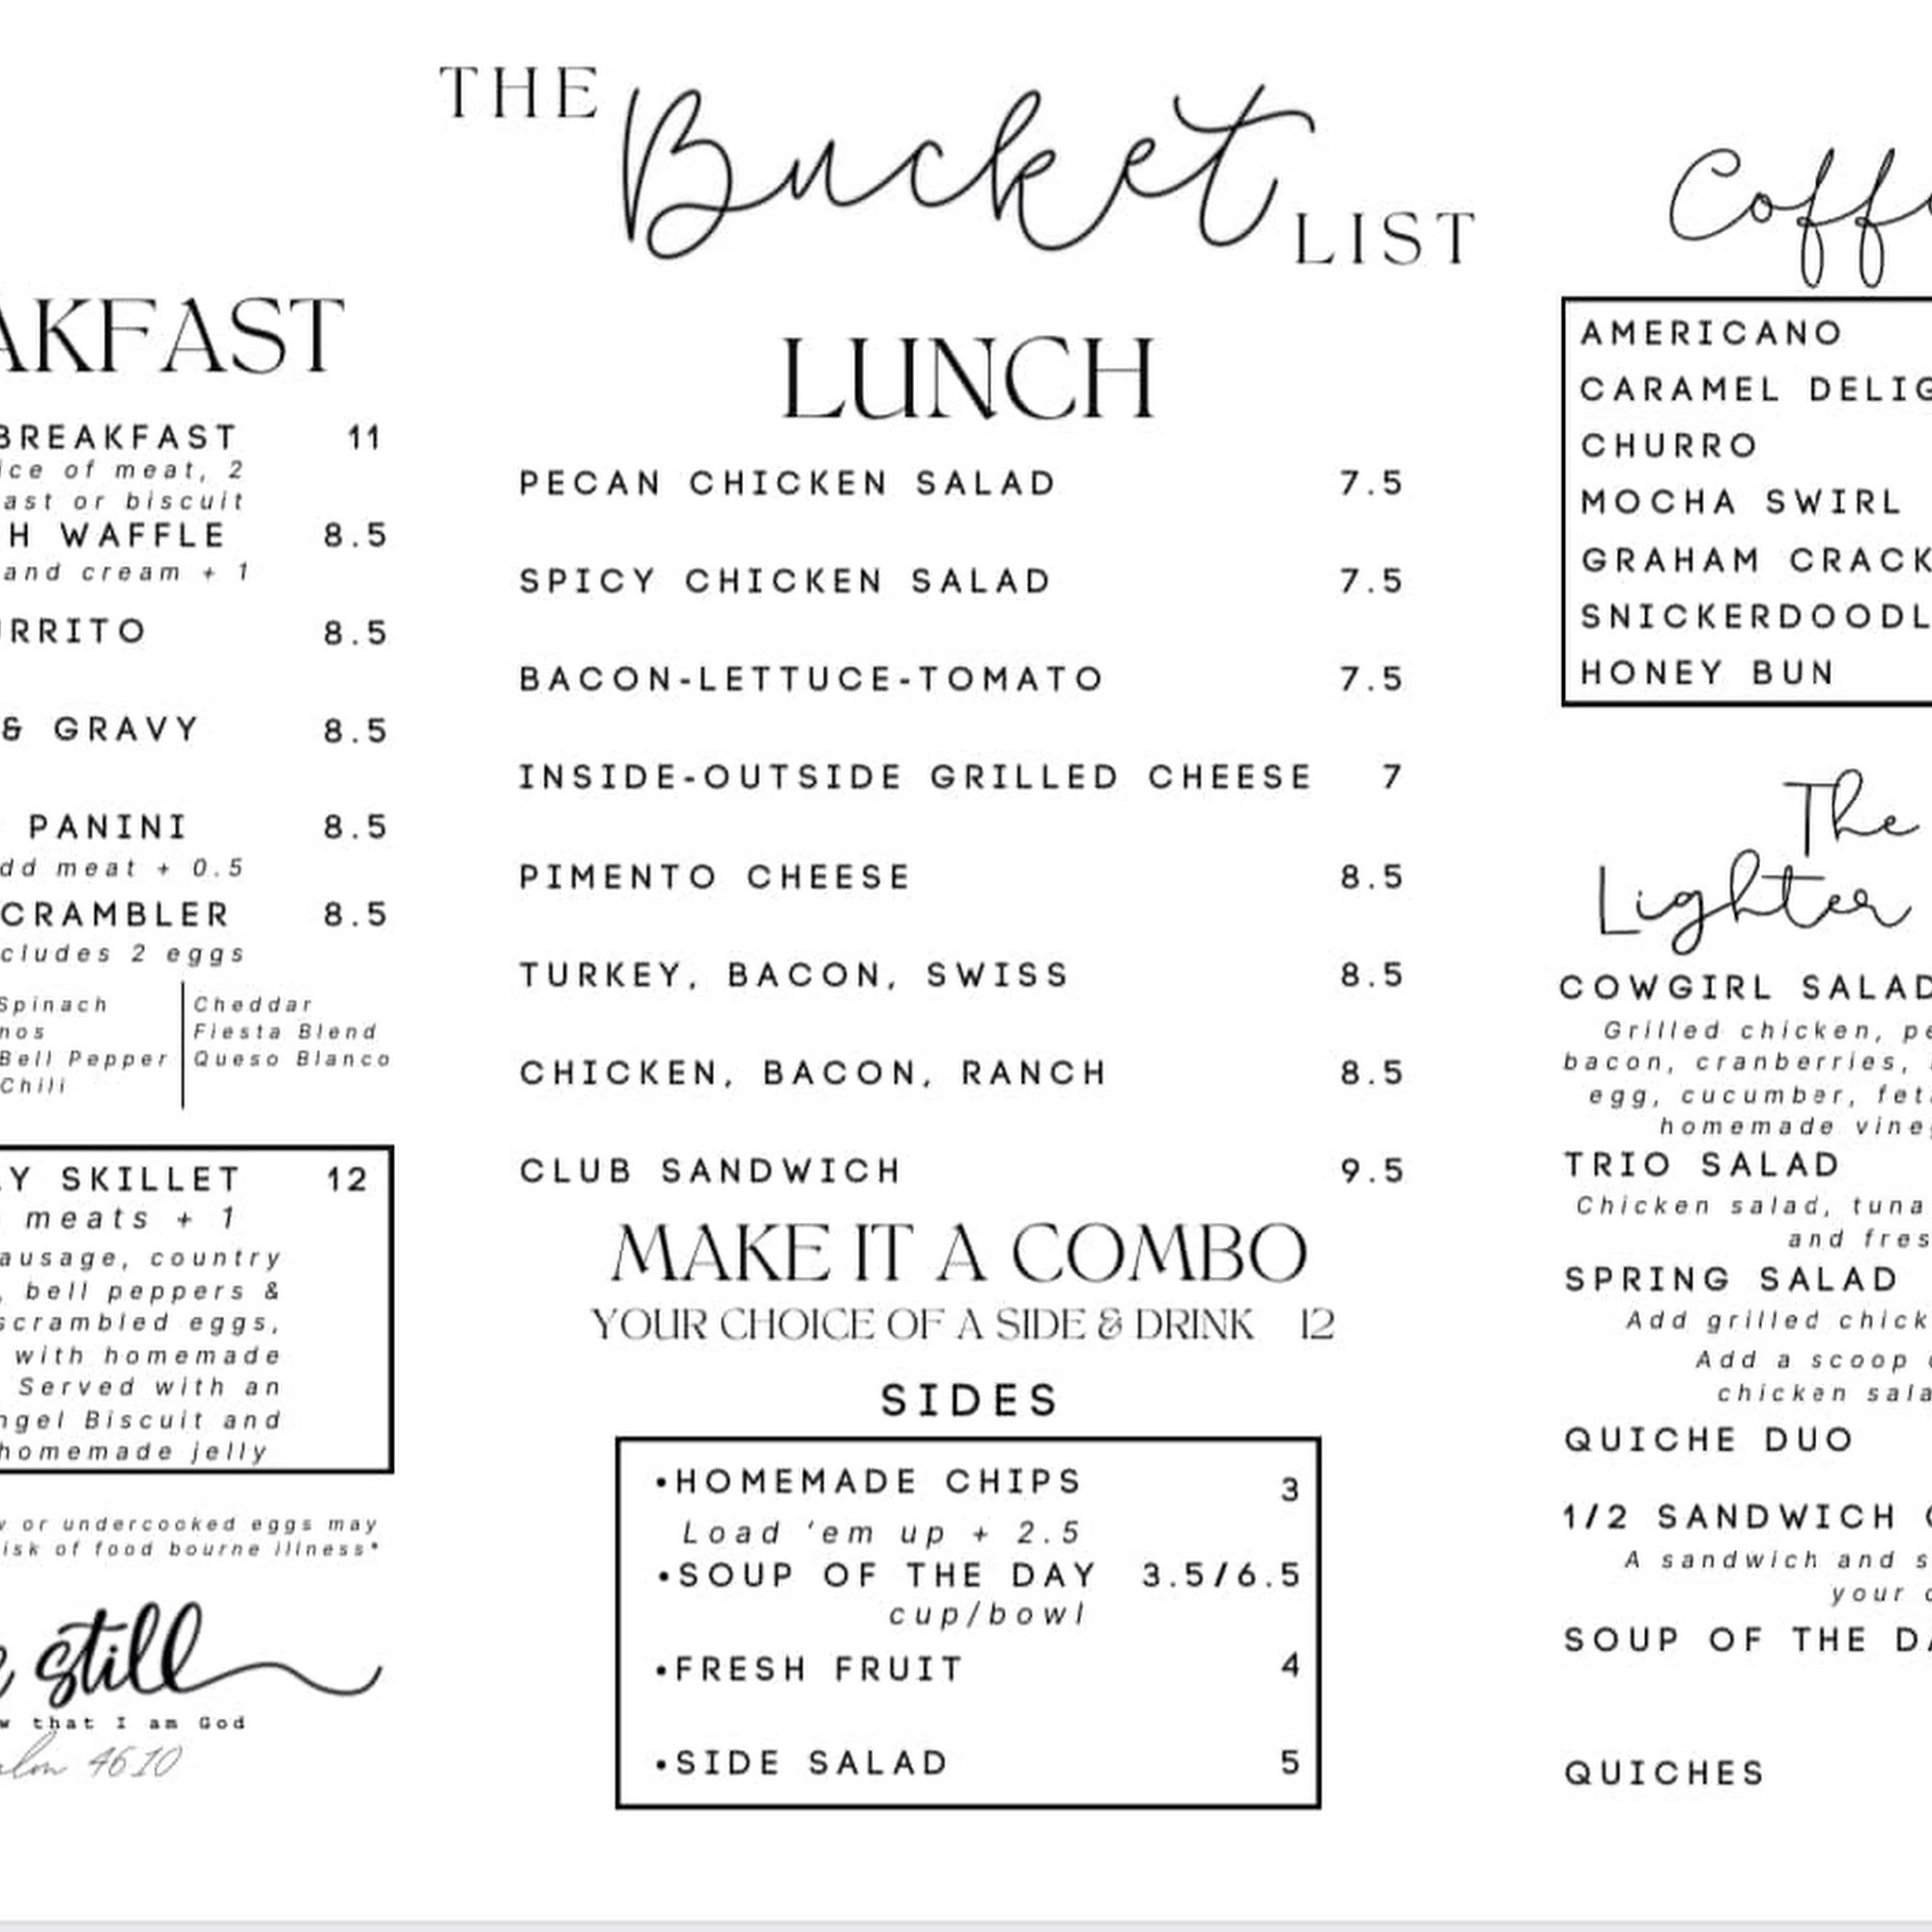 THE Bucket LIST
AKFAST
BREAKFAST 11
ice of meat, 2
ast or biscuit
H WAFFLE 8.5
and cream + 1
URRITO 8.5
& GRAVY 8.5
PANINI 8.5
dd meat + 0.5
CRAMBLER 8.5
cludes 2 eggs
Spinach
nos
Bell Pepper
Chili
Cheddar
Fiesta Blend
Queso Blanco
Y SKILLET 12
meats + 1
ausage, country
, bell peppers &
scrambled eggs,
with homemade
Served with an
ngel Biscuit and
homemade jelly
w or undercooked eggs may
isk of food bourne illness*
still
w that I am God
alm 46:10
LUNCH
PECAN CHICKEN SALAD 7.5
SPICY CHICKEN SALAD 7.5
BACON-LETTUCE-TOMATO 7.5
INSIDE-OUTSIDE GRILLED CHEESE 7
PIMENTO CHEESE 8.5
TURKEY, BACON, SWISS 8.5
CHICKEN, BACON, RANCH 8.5
CLUB SANDWICH 9.5
MAKE IT A COMBO
YOUR CHOICE OF A SIDE & DRINK 12
SIDES
•HOMEMADE CHIPS 3
Load 'em up + 2.5
•SOUP OF THE DAY 3.5/6.5
cup/bowl
•FRESH FRUIT 4
•SIDE SALAD 5
Coffe
AMERICANO
CARAMEL DELIG
CHURRO
MOCHA SWIRL
GRAHAM CRACK
SNICKERDOODL
HONEY BUN
The
Lighter
COWGIRL SALAD
Grilled chicken, pe
bacon, cranberries,
egg, cucumber, fet
homemade vine
TRIO SALAD
Chicken salad, tuna
and fres
SPRING SALAD
Add grilled chick
Add a scoop
chicken sala
QUICHE DUO
1/2 SANDWICH
A sandwich and s
your
SOUP OF THE DA
QUICHES